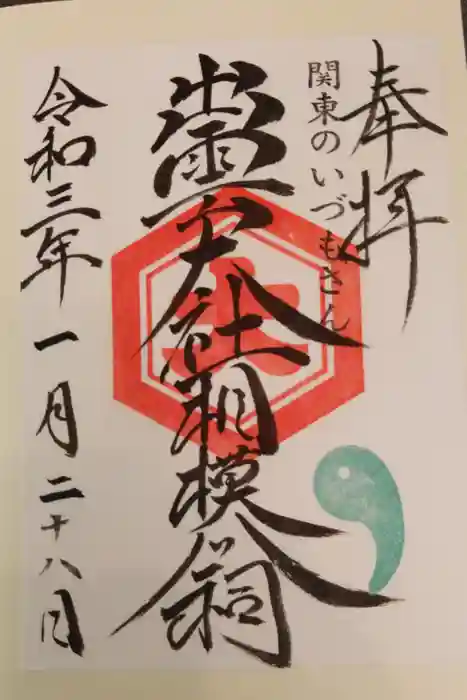 奉拝
関東のいづもさん
出雲大社相模分祠
大
令和三年一月二十八日